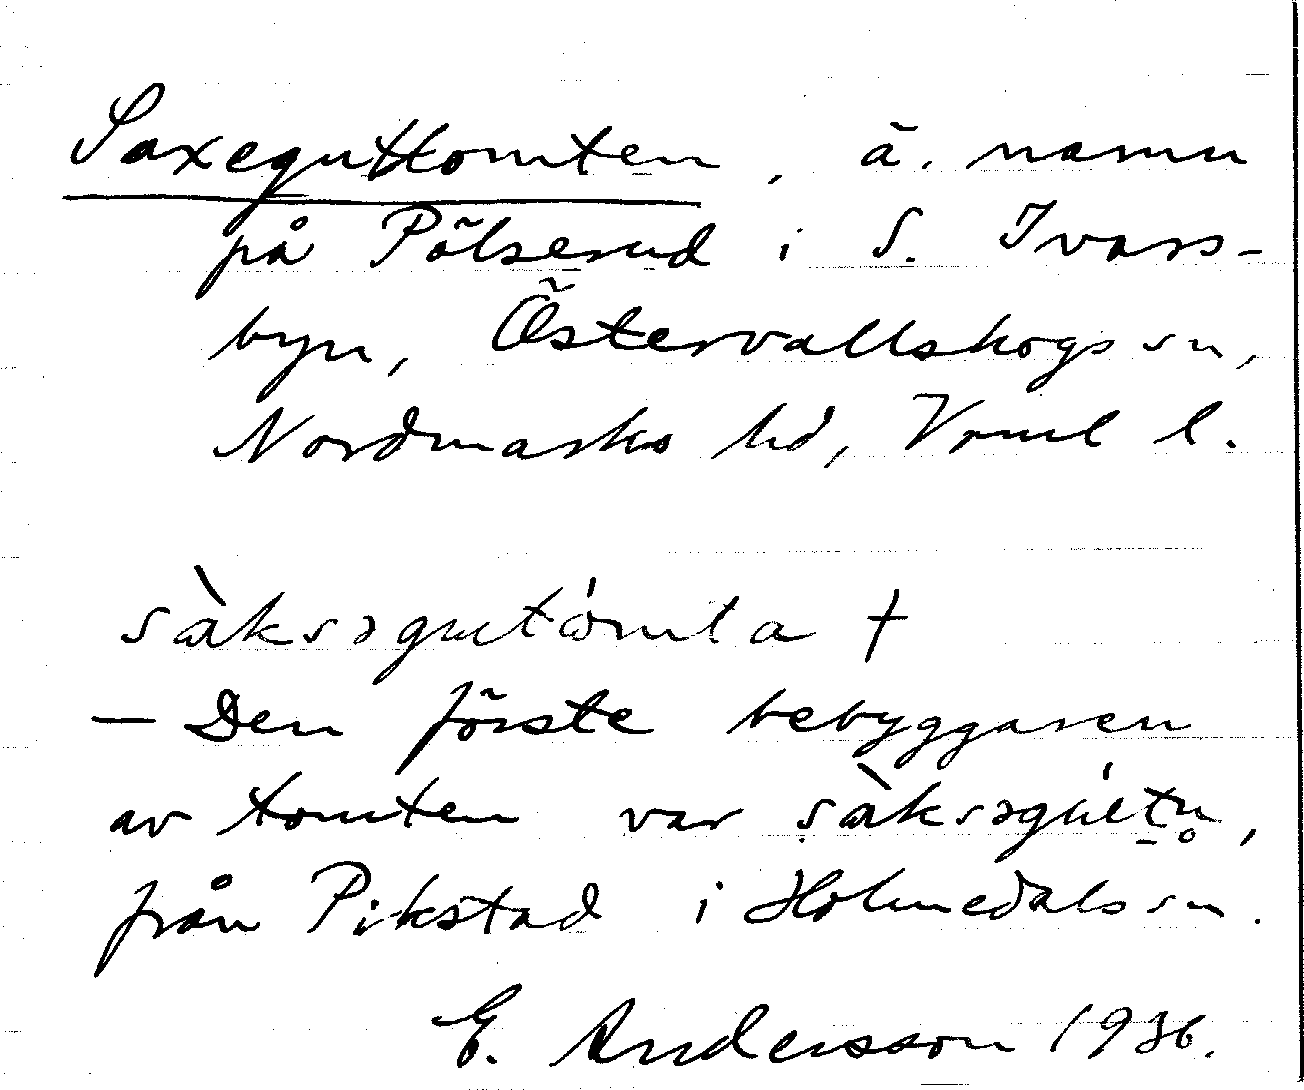 Saxeguttomten, ä. namn
på Pölserud i S. Ivars-
byn, Östervallskogs sn,
Nordmarks hd, Vrml l.
sàksəgutómta †
— Den förste bebyggaren
av tomten var sàksəgútn̥,
från Pikstad i Holmedals sn.
E. Andersson 1936.